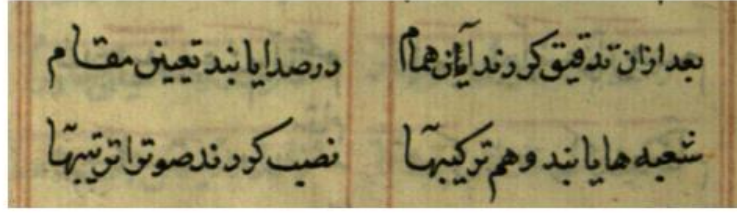 بعد ازان تدقیق کردند آیان همام در صدا یابند تعیین مقام
شعبه ها یابند و هم ترکیبها نصب کردند صوت را ترتیبها